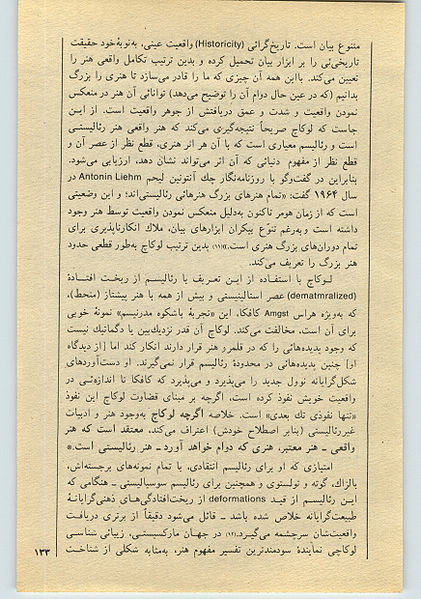 متنوع بیان است. تاریخ‌گرائی (Historicity) واقعیت عینی، به‌نوبهٔ‌خود حقیقت
تاریخی‌ئی را بر ابزار بیان تحمیل کرده و بدین ترتیب تکامل واقعی هنر را
تعیین می‌کند. بااین همه آن چیزی که ما را قادر می‌سازد تا هنری را بزرگ
بدانیم (که در عین حال دوام آن را توضیح می‌دهد) توانائی آن هنر در منعکس
نمودن واقعیت و شدت و عمق دریافتش از جوهر واقعیت است. از این
جاست که لوکاچ صریحاً نتیجه‌گیری می‌کند که هنر واقعی هنر رئالیستی
است و رئالیسم معیاری است که با آن هر اثر هنری، قطع نظر از عصر آن و
قطع نظر از مفهوم دنیائی که آن اثر می‌تواند نشان دهد، ارزیابی می‌شود.
بنابراین در گفت‌وگو با روزنامه‌نگار چك آنتونین لیحم Antonin Liehm در
سال ۱۹۶۴ گفت: «تمام هنرهای بزرگ هنرهائی رئالیستی‌اند؛ و این وضعیتی
است که از زمان هومر تاکنون به‌دلیل منعکس نمودن واقعیت توسط هنر وجود
داشته است و به‌رغم تنوع بیکران ابزارهای بیان، ملاك انکارناپذیری برای
تمام دوران‌های بزرگ هنری است.»(۱۱) بدین ترتیب لوکاچ به‌طور قطعی حدود
هنر بزرگ را تعریف می‌کند.
لـوکاچ با استفـاده از ایـن تعـریف با رئالیسم از ریخت افتـادهٔ
(dematmralized) عصر استالینیستی و بیش از همه با هنر پیشتاز (منحط)،
که به‌ویژه هراس Amgst کافکا، این «تجربهٔ باشکوه مدرنیسم» نمونهٔ خوبی
برای آن است، مخالفت می‌کند. لوکاچ آن قدر نزدیك‌بین یا دگماتیك نیست
که وجود پدیده‌هائی را که در قلمرو هنر قرار دارند انکار کند اما [از دیدگاه
او] چنین پدیده‌هائی در محدودهٔ رئالیسم قرار نمی‌گیرند. او دست‌آوردهای
شکل‌گرایانه نوول جدید را می‌پذیرد و می‌پذیرد که کافکا تا اندازه‌ئی در
واقعیت خویش نفوذ کرده است، اگرچه بر مبنای قضاوت لوکاچ این نفوذ
«تنها نفوذی تك بعدی» است. خلاصه اگرچه لوکاچ به‌وجود هنر و ادبیات
غیررئالیستی (بنابر اصطلاح خودش) اعتراف می‌کند، معتقد است که هنر
واقعی ـ هنر معتبر، هنری که دوام خواهد آورد ـ هنر رئالیستی است.*
امتیازی که او برای رئالیسم انتقادی، با تمام نمونه‌های برجسته‌اش،
بالزاك، گوته و تولستوی و همچنین برای رئالیسم سوسیالیستی ـ هنگامی که
ایـن رئالیسم از قیـد deformations از ریخت‌افتادگی‌هـای ذهنی‌گرایانـهٔ
طبیعت‌گرایانه خلاص شده باشد ـ قائل می‌شود دقیقاً از برتری دریافـت
واقعیت‌شان سرچشمه می‌گیـرد.(۱۲) در جهـان مارکسیستـی، زیبائی شناسـی
لوکاچی نمایندهٔ سودمندترین تفسیر مفهوم هنر، به‌مثابه شکلی از شناخت
۱۳۳